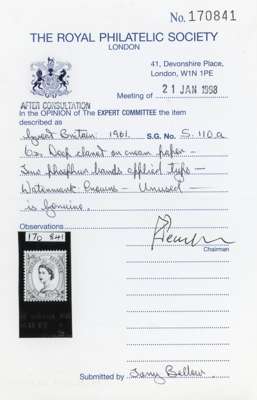 No. 170841
THE ROYAL PHILATELIC SOCIETY
LONDON
41, Devonshire Place,
London, W1N 1PE
Meeting of 21 JAN 1998
AFTER CONSULTATION
In the OPINION of THE EXPERT COMMITTEE the item
described as
Great Britain 1961. S.G. No. S. 110a
6d. Deep claret on cream paper -
Two phosphor bands applied typo -
Watermark Crowns - Unused -
is genuine.
Observations
Chairman
170 841
Submitted by Tony Bellew